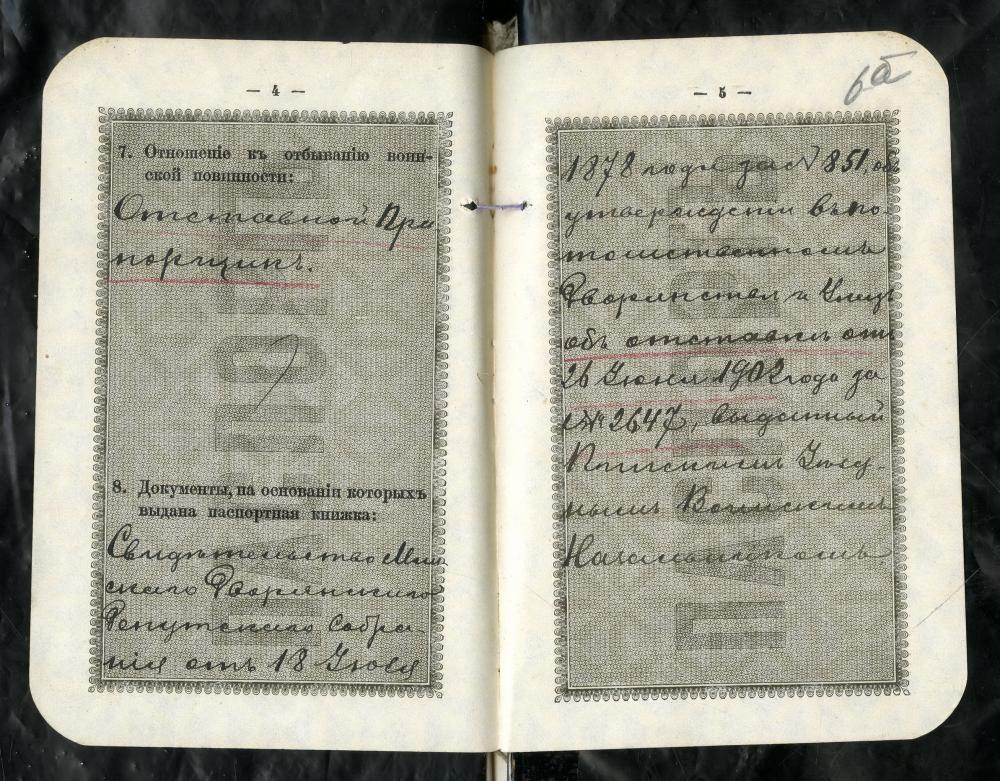 — 4 —
7. Отношеніе къ отбыванію воин-
ской повинности:
Отставной Пра
порщикъ.
8. Документы, на основаніи которыхъ
выдана паспортная книжка:
Свидѣтельство Мин
скаго Дворянскаго
Депутскаго Собра-
нія отъ 18 Іюля
— 5 —
6а
1878 года за № 851, объ
утвержденіи въ по-
томственномъ
Дворянствѣ и Указъ
объ отставкѣ отъ
26 Іюня 1902 года за
№ 2647, выданный
Уѣзд-
нымъ Воинскимъ
Начальникомъ
ПАСПОРТНАЯ